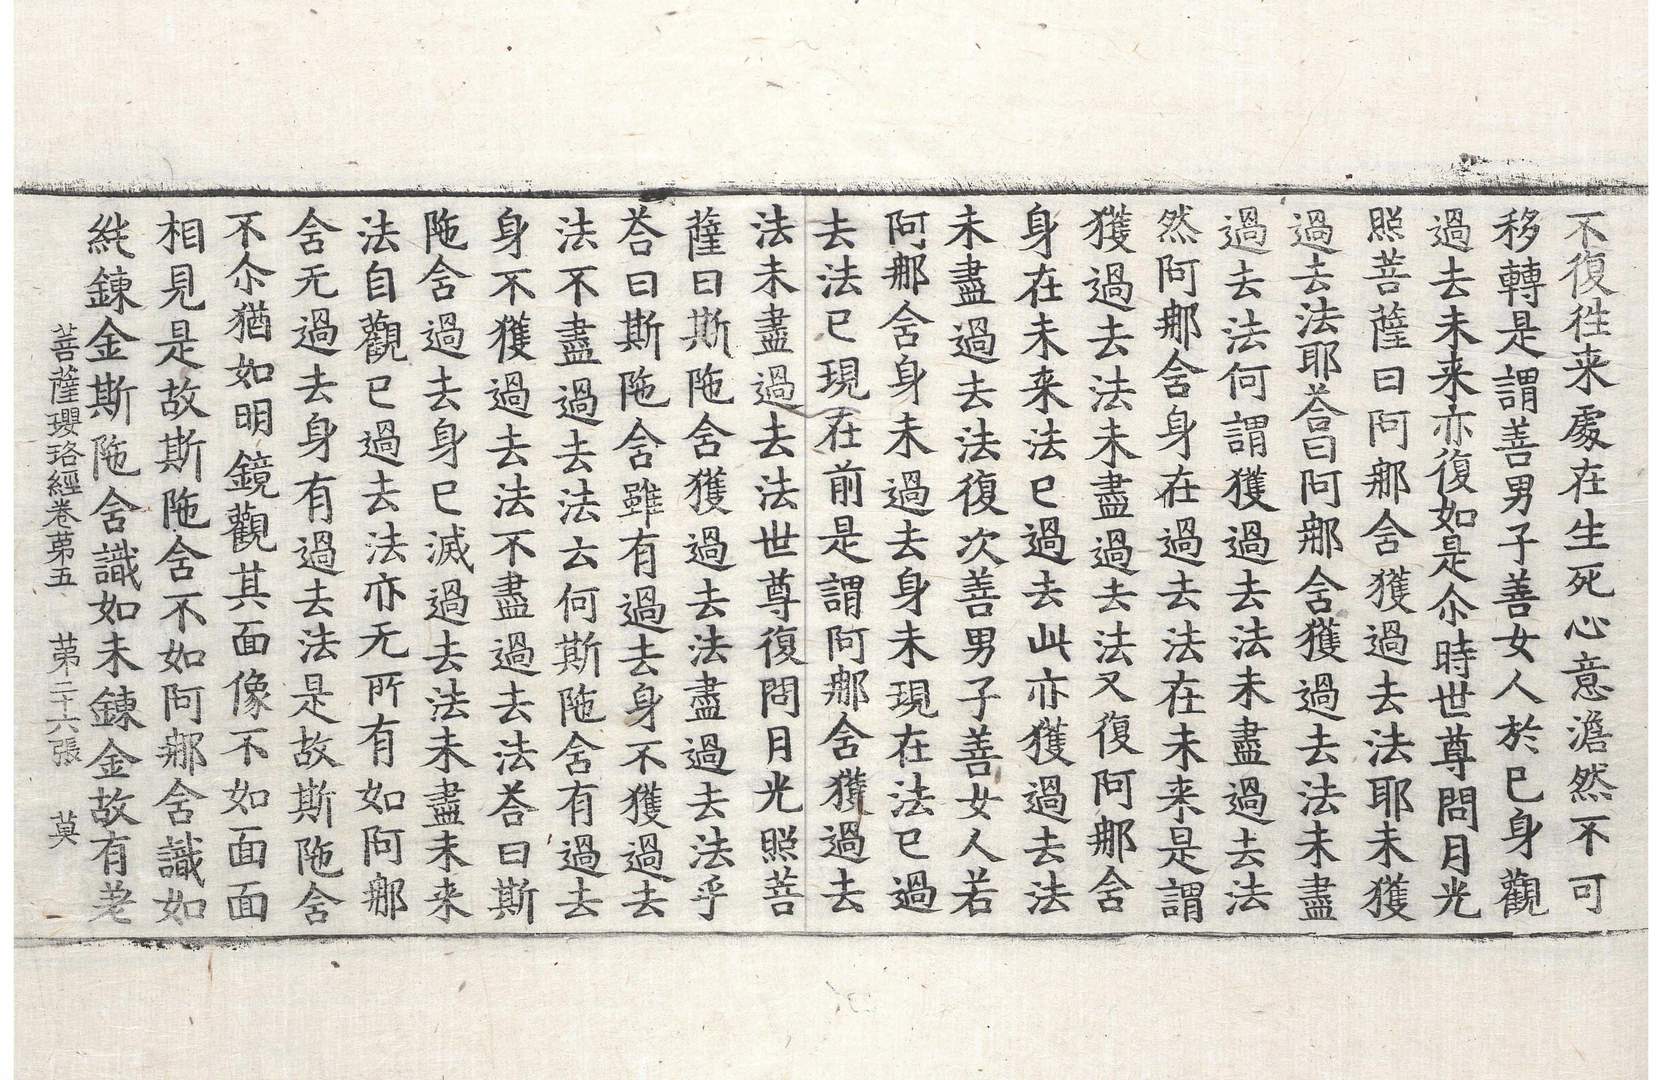 不復徃来處在生死心意澹然不可
移轉是謂善男子善女人於已身觀
過去未来亦復如是尒時世尊問月光
照菩薩曰阿那舍獲過去法耶未獲
過去法耶荅曰阿那舍獲過去法未盡
過去法何謂獲過去法未盡過去法
然阿那舍身在過去法在未来是謂
獲過去法未盡過去法又復阿那舍
身在未来法已過去此亦獲過去法
未盡過去法復次善男子善女人若
阿那舍身未過去身未現在法已過
去法已現在前是謂阿那舍獲過去
法未盡過去法世尊復問月光照菩
薩曰斯陁舍獲過去法盡過去法乎
荅曰斯陁舍雖有過去身不獲過去
法不盡過去法云何斯陁舍有過去
身不獲過去法不盡過去法荅曰斯
陁舍過去身已滅過去法未盡未来
法自觀已過去法亦无所有如阿那
舍无過去身有過去法是故斯陁舍
不尒猶如明鏡觀其面像不如面面
相見是故斯陁舍不如阿那舍識如
純鍊金斯陁舍識如未鍊金故有老
菩薩瓔珞經卷苐五　苐二十六張　莫